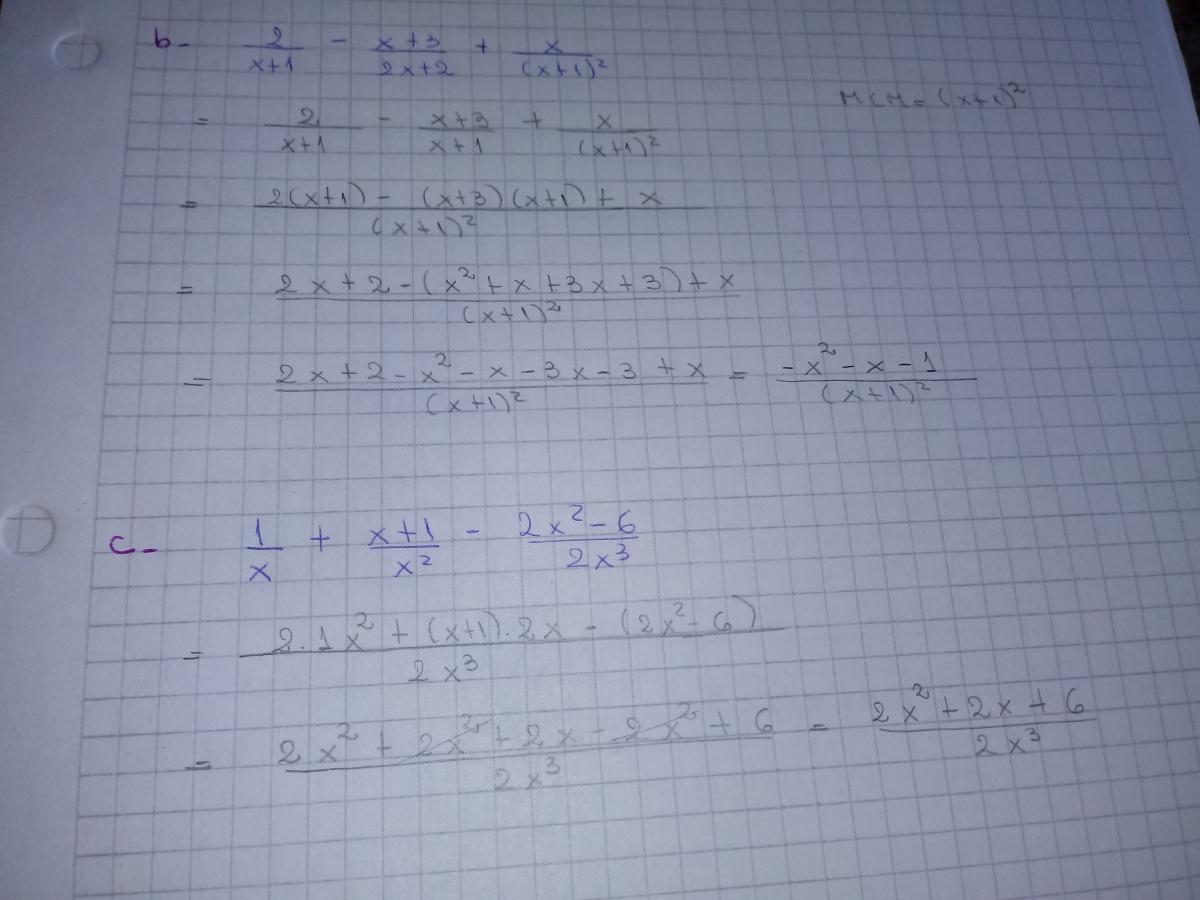 b- 2/(x+1) - (x+3)/(2x+2) + x/(x+1)²
MCM = (x+1)²
= 2/(x+1) - (x+3)/(x+1) + x/(x+1)²
= (2(x+1) - (x+3)(x+1) + x)/(x+1)²
= (2x+2-(x²+x+3x+3)+x)/(x+1)²
= (2x+2-x²-x-3x-3+x)/(x+1)² = (-x²-x-1)/(x+1)²
c- 1/x + (x+1)/x² - (2x²-6)/2x³
= (2.1x² + (x+1).2x - (2x²-6))/2x³
= (2x² + 2x² + 2x - 2x² + 6)/2x³ = (2x²+2x+6)/2x³